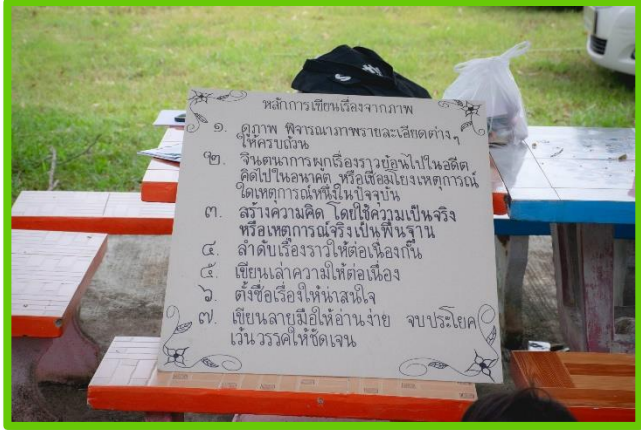 หลักการเขียนเรื่องจากภาพ
๑. ดูภาพ พิจารณาภาพรายละเอียดต่างๆ
ให้ครบถ้วน
๒. จินตนาการผูกเรื่องราวย้อนไปในอดีต
คิดไปในอนาคต หรือเชื่อมโยงเหตุการณ์
ใดเหตุการณ์หนึ่งในปัจจุบัน
๓. สร้างความคิด โดยใช้ความเป็นจริง
หรือเหตุการณ์จริงเป็นพื้นฐาน
๔. ลำดับเรื่องราวให้ต่อเนื่องกัน
๕. เขียนเล่าความให้ต่อเนื่อง
๖. ตั้งชื่อเรื่องให้น่าสนใจ
๗. เขียนลายมือให้อ่านง่าย จบประโยค
เว้นวรรคให้ชัดเจน